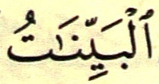 ٱلۡبَيِّنَٰتُ